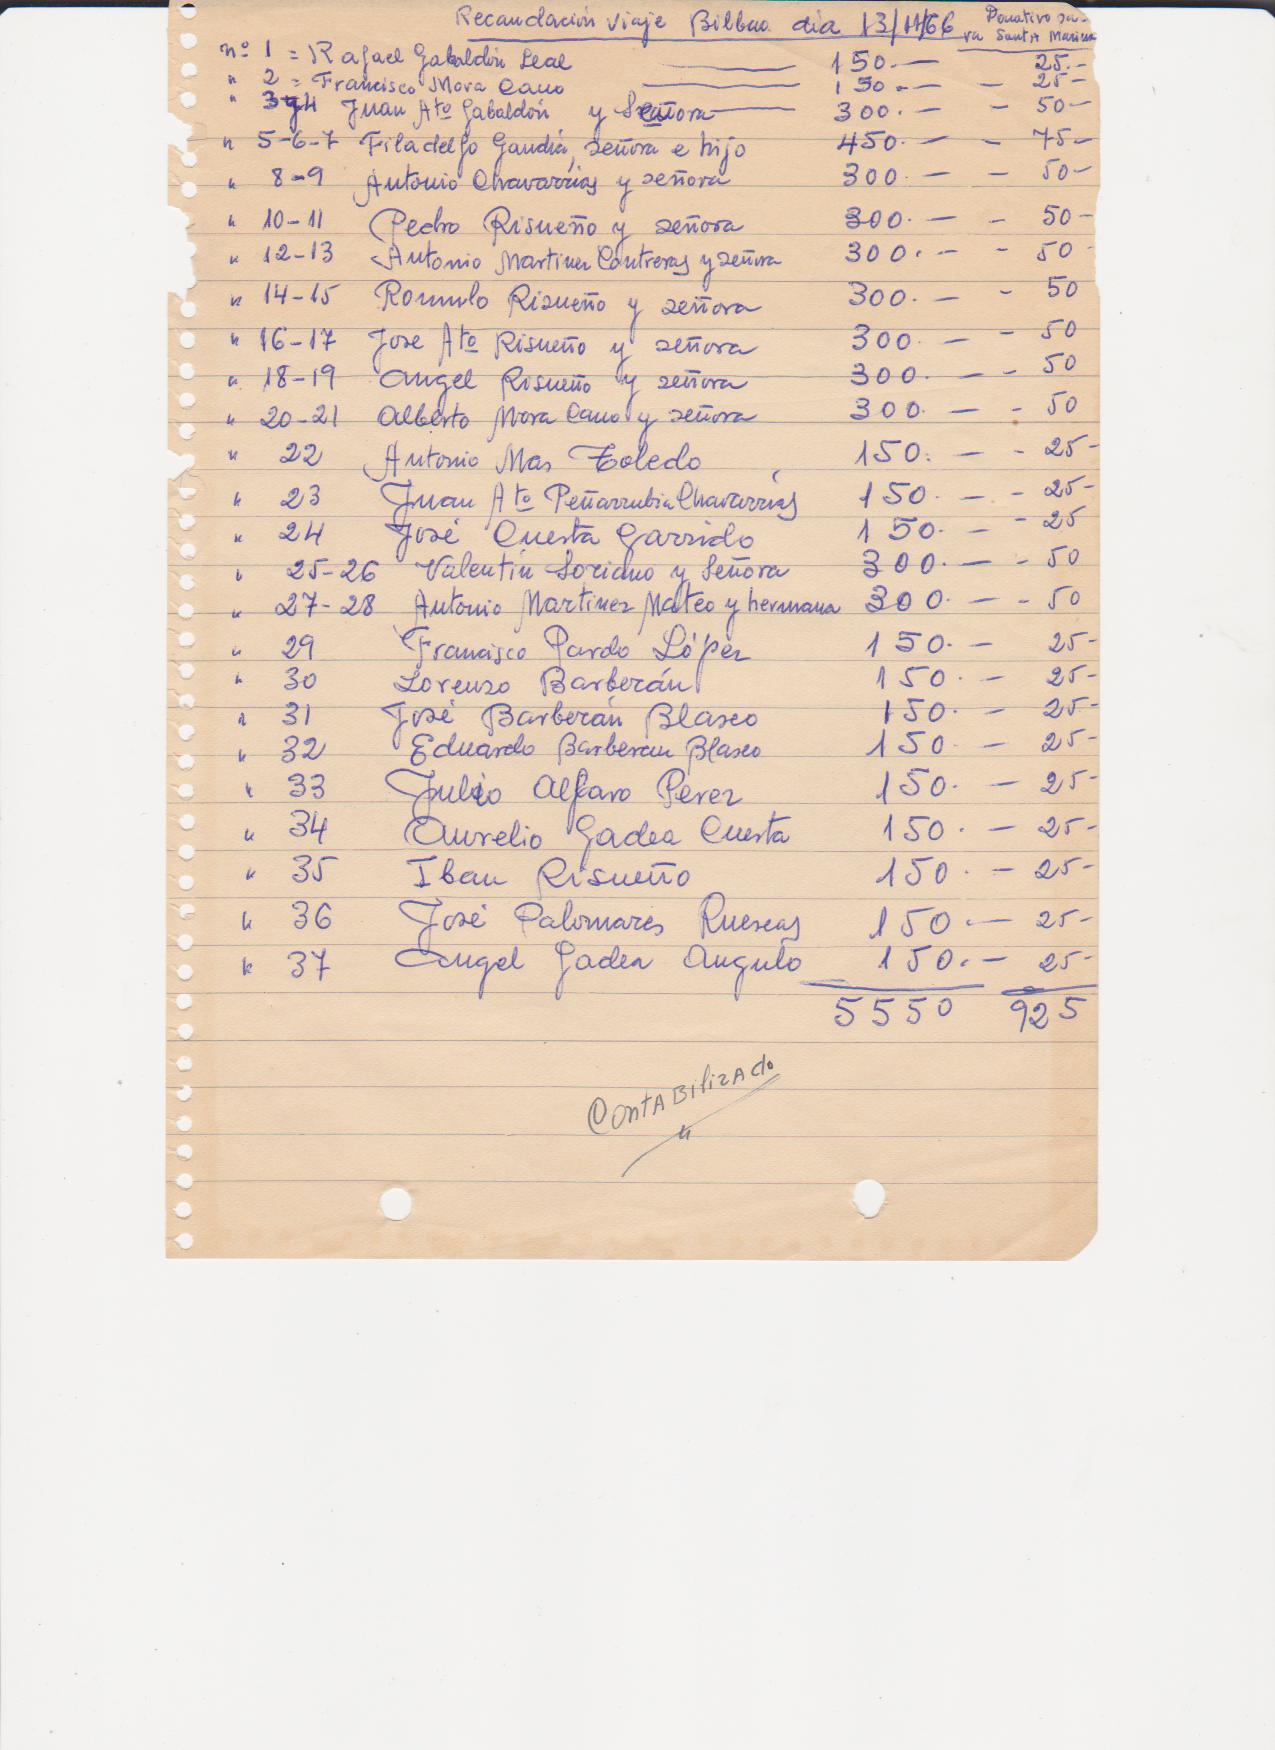 Recaudación viaje Bilbao dia 13/11/66 Donativo pa-
ra Santa Marina
nº 1 = Rafael Gabaldón Leal 150.— 25.-
" 2 = Francisco Mora Cano 150.— — 25-
" 3y4 Juan Atº Gabaldón y Señora 300.— - 50-
" 5-6-7 Filadelfo Gandía, señora e hijo 450.— - 75-
" 8-9 Antonio Chavarrías y señora 300.— - 50-
" 10-11 Pedro Risueño y señora 300.— - 50-
" 12-13 Antonio Martinez Contreras y señora 300.— - 50
" 14-15 Romulo Risueño y señora 300.— - 50
" 16-17 Jose Atº Risueño y señora 300.— - 50
" 18-19 Angel Risueño y señora 300.— - 50
" 20-21 Alberto Mora Cano y señora 300.— - 50
" 22 Antonio Mas Toledo 150.— - 25-
" 23 Juan Atº Peñarrubia Chavarrías 150.— - 25-
" 24 José Cuesta Garrido 150.— - 25
" 25-26 Valentín Soriano y Señora 300.— - 50
" 27-28 Antonio Martinez Mateo y hermana 300.— - 50
" 29 Francisco Pardo López 150.— 25-
" 30 Lorenzo Barberán 150.— 25-
" 31 José Barberán Blasco 150.— 25-
" 32 Eduardo Barberan Blasco 150.— 25-
" 33 Julio Alfaro Perez 150.— 25-
" 34 Aurelio Gadea Cuesta 150.— 25-
" 35 Iban Risueño 150.— 25-
" 36 José Palomares Ruescas 150.— 25-
" 37 Angel Gadea Angulo 150.— 25-
5550 925
Contabilizado
"